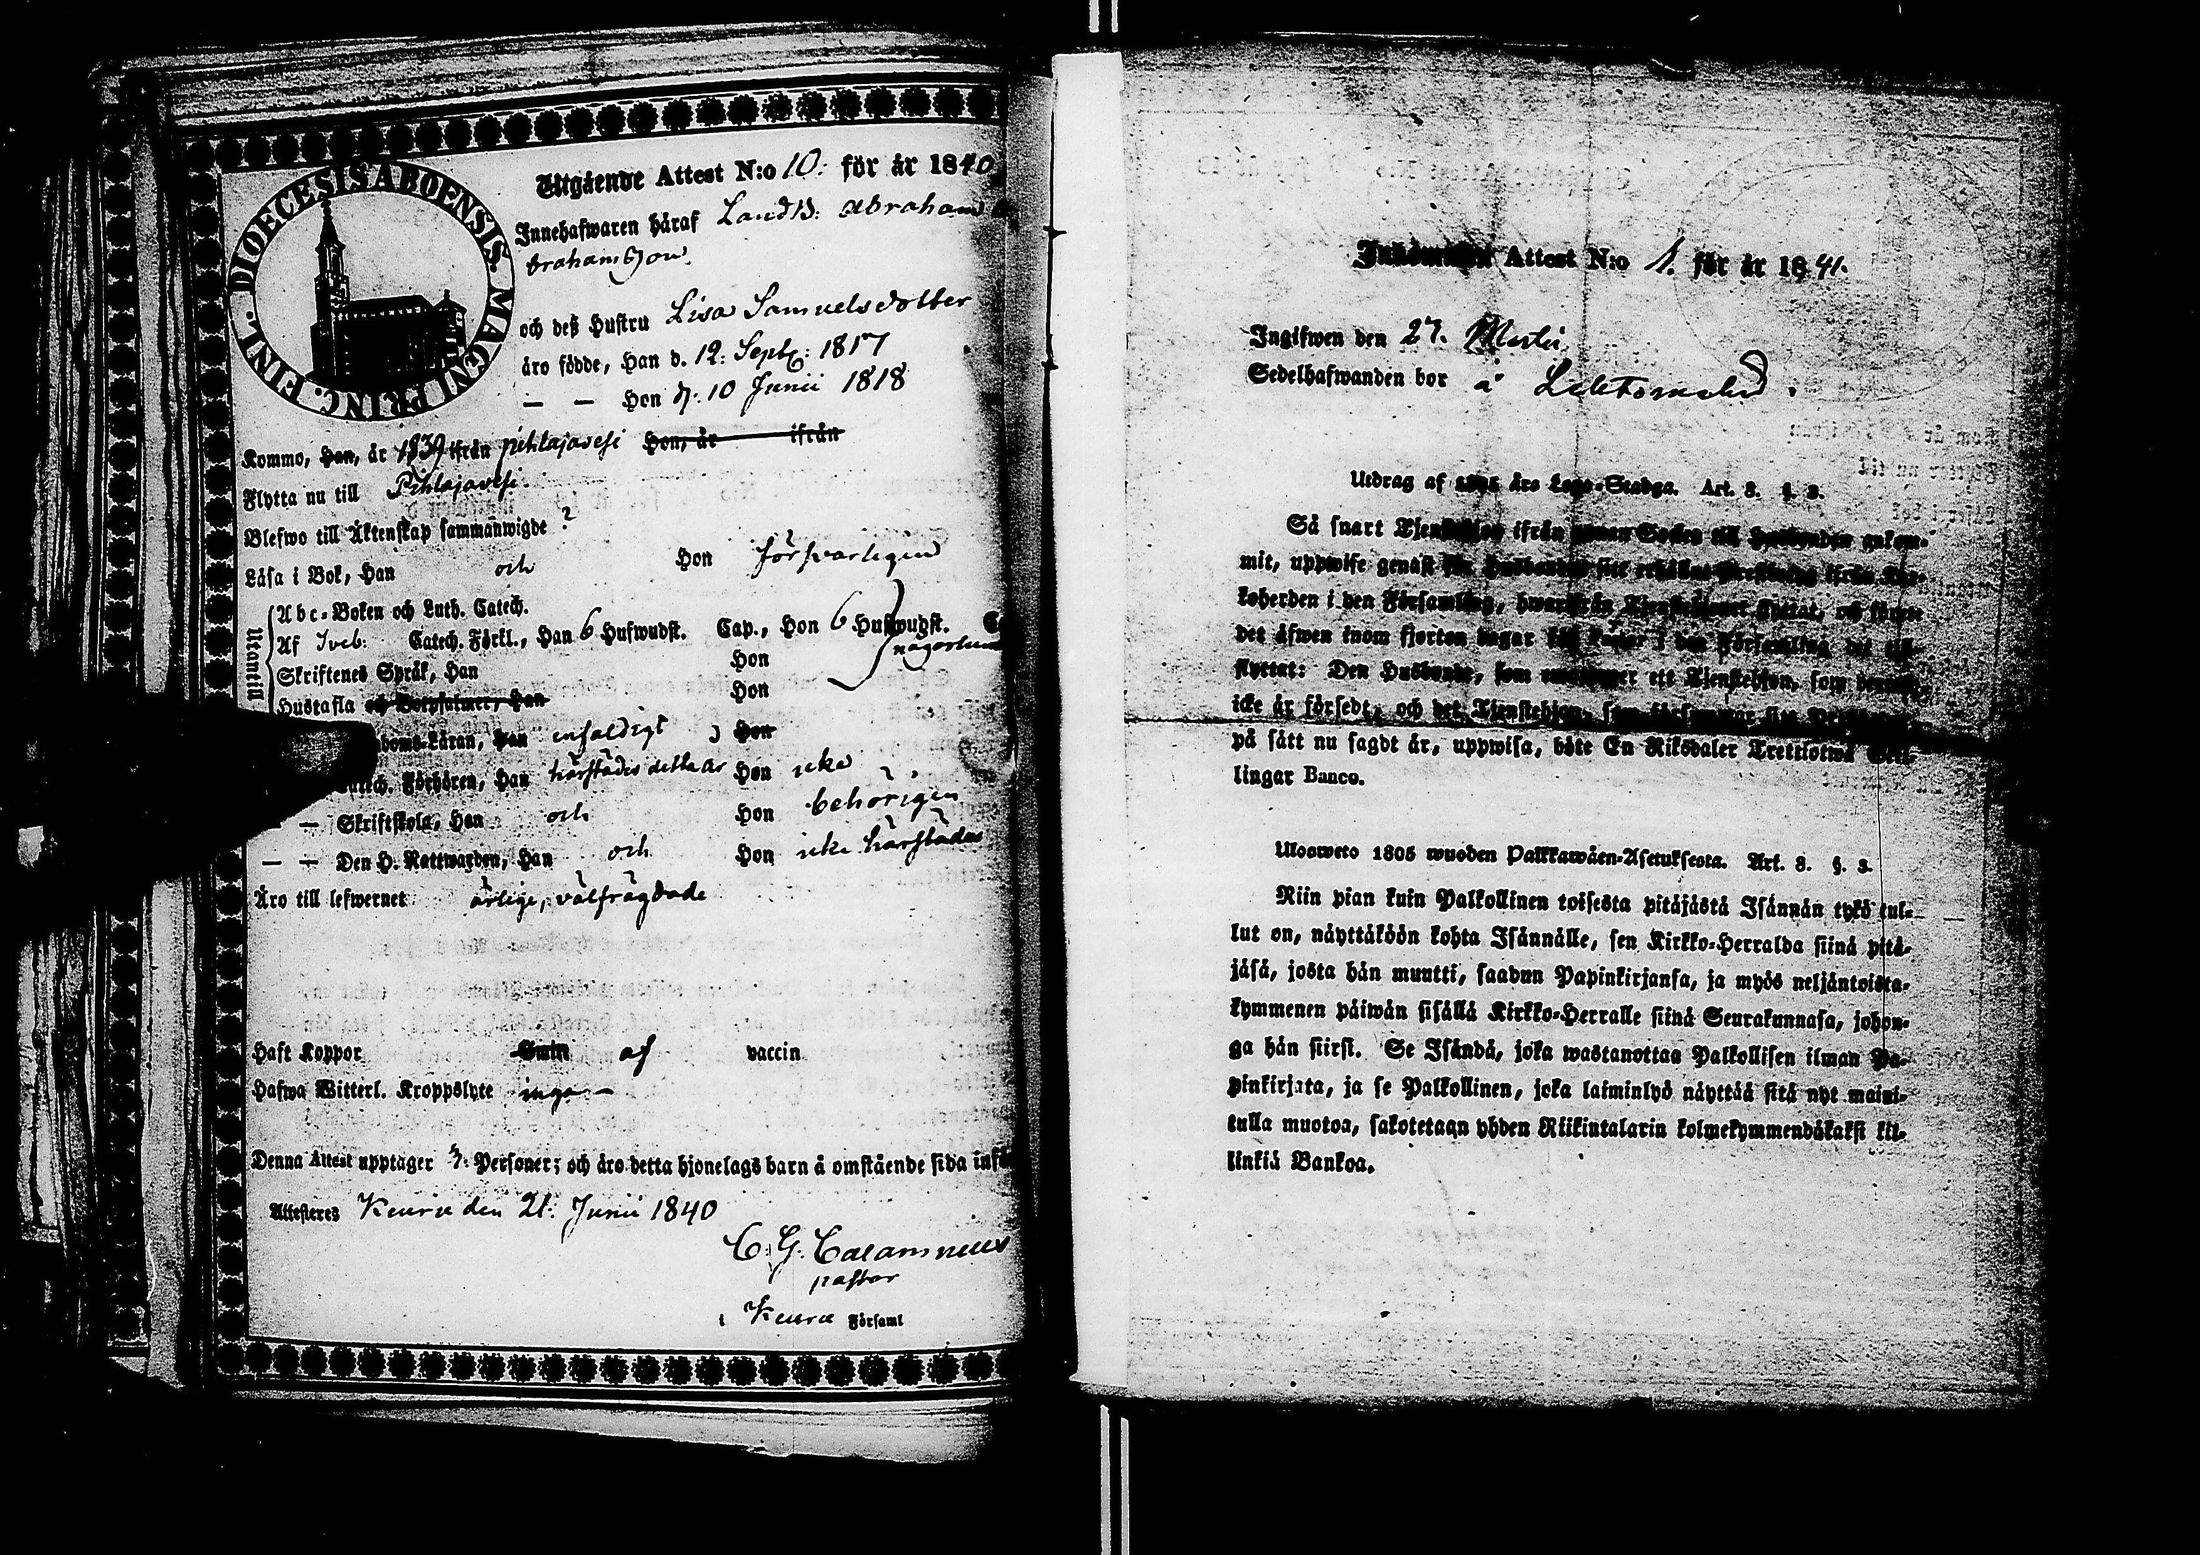 DIOECESIS ABOENSIS. MAGNI PRINC. FINL.
Utgående Attest N:o 10. för år 1840
Innehafwaren häraf Landtb: Abraham A
brahamsson
och deß Hustru Lisa Samuelsdotter
äro födde, Han d. 12: Septb: 1817
— — Hon d: 10 Junii 1818
Kommo, Han, år 1839 ifrån Pihlajavesi Hon, år ifrån
Flytta nu till Pihlajavesi.
Blefwo till Äktenskap sammanwigde ?
Läsa i Bok, Han och Hon försvarligen
Utantill
Abc-Boken och Luth. Catech.
Af Sveb: Catech. Förkl., Han 6 Hufwudst. Cap., Hon 6 Hufwudst.
Skriftenes Språk, Han Hon någorlunda
Hustafla och Botpsalmer, Han Hon
doms-Läran, Han enfaldigt Hon
Catech. Förhören, Han härstädes detta år Hon icke
— — Skriftskola, Han och Hon behörigen
— — Den H. Nattwarden, Han och Hon icke härstädes
Äro till lefwernet ärlige, välfrägdade
Haft Koppor Smin af vaccin
Hafwa Witterl. Kroppslyte inga —
Denna Attest upptager Personer; och äro detta hjonelags barn å omstående sida inf
Attesteres Keuru den 21: Junii 1840
C. G. Calamnius
pastor
i Keuru Församl
Inkommen Attest N:o 1. för år 1841.
Ingifwen den 27. Martii
Sedelhafwanden bor å
Utdrag af 1805 års Lego-Stadga. Art. 8. §. 3.
Så snart Tjenstehjon ifrån annan Socken till Husbonden ankom-
mit, uppwise genast för Husbonden sitt erhållna Prestbetyg ifrån Kyr-
koherden i den Församling, hwarifrån Tjenstehjonet flyttat, och förete
det äfwen inom fjorton dagar hos Pastor i den Församling det till-
flyttat: Den Husbonde, som emottager ett Tjenstehjon, som dermed
icke är försedt, och det Tjenstehjon, som försummar sitt
på sätt nu sagdt är, uppwisa, böte En Riksdaler Trettiotwå Skil-
lingar Banco.
Ulosweto 1805 wuoden Palkkawäen-Asetuksesta. Art. 8. §. 3.
Niin pian kuin Palkollinen toisesta pitäjästä Isännän tykö tul-
lut on, näyttäköön kohta Isännälle, sen Kirkko-Herralda siinä pitä-
jäsä, josta hän muutti, saadun Papinkirjansa, ja myös neljäntoista-
kymmenen päiwän sisällä Kirkko-Herralle siinä Seurakunnasa, johon-
ga hän siirsi. Se Isändä, joka wastanottaa Palkollisen ilman Pa-
pinkirjata, ja se Palkollinen, joka laiminlyö näyttää sitä nyt maini-
tulla muotoa, sakotetaan yhden Riikintalarin kolmekymmendäkaksi kil-
linkiä Bankoa.